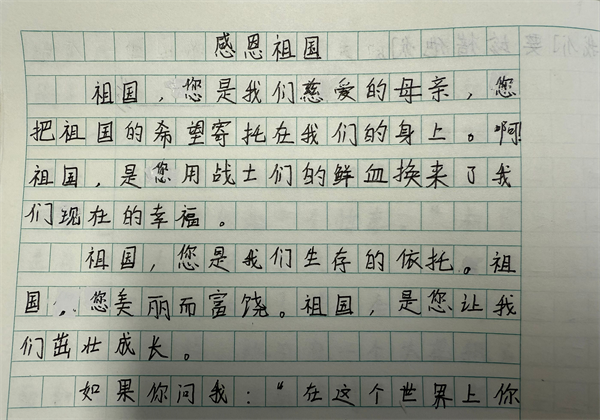 感恩祖国
祖国，您是我们慈爱的母亲，您
把祖国的希望寄托在我们的身上。啊
祖国，是您用战士们的鲜血换来了我
们现在的幸福。
祖国，您是我们生存的依托。祖
国，您美丽而富饶。祖国，是您让我
们茁壮成长。
如果你问我：“在这个世界上你